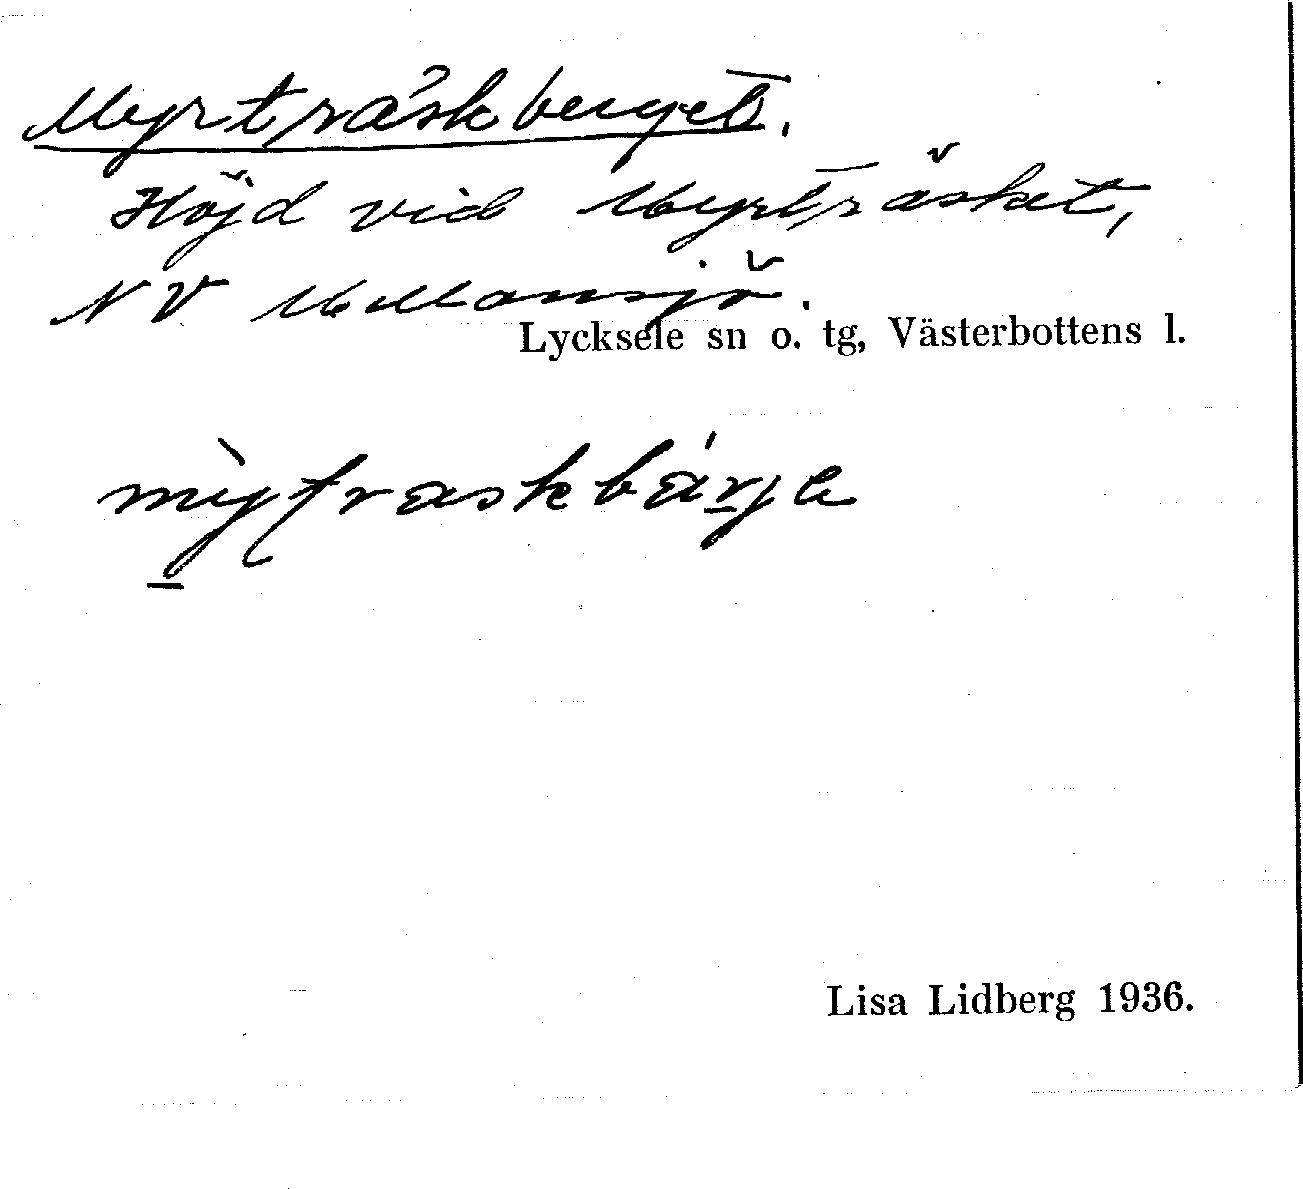 Myrträskberget.
Höjd vid Myrträsket,
NV Mellansjö.
Lycksele sn o. tg, Västerbottens l.
Lisa Lidberg 1936.